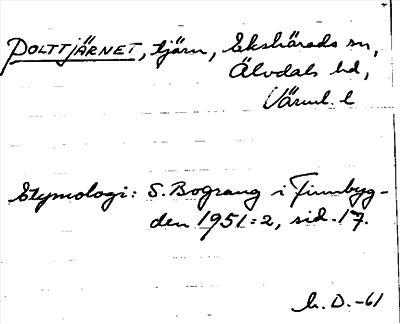 POLTTJÄRNET, tjärn, Ekshärads sn,
Älvdals hd,
Värml. l
Etymologi: S. Bograng i Finnbyg-
den 1951:2, sid. 17.
h. D. -61